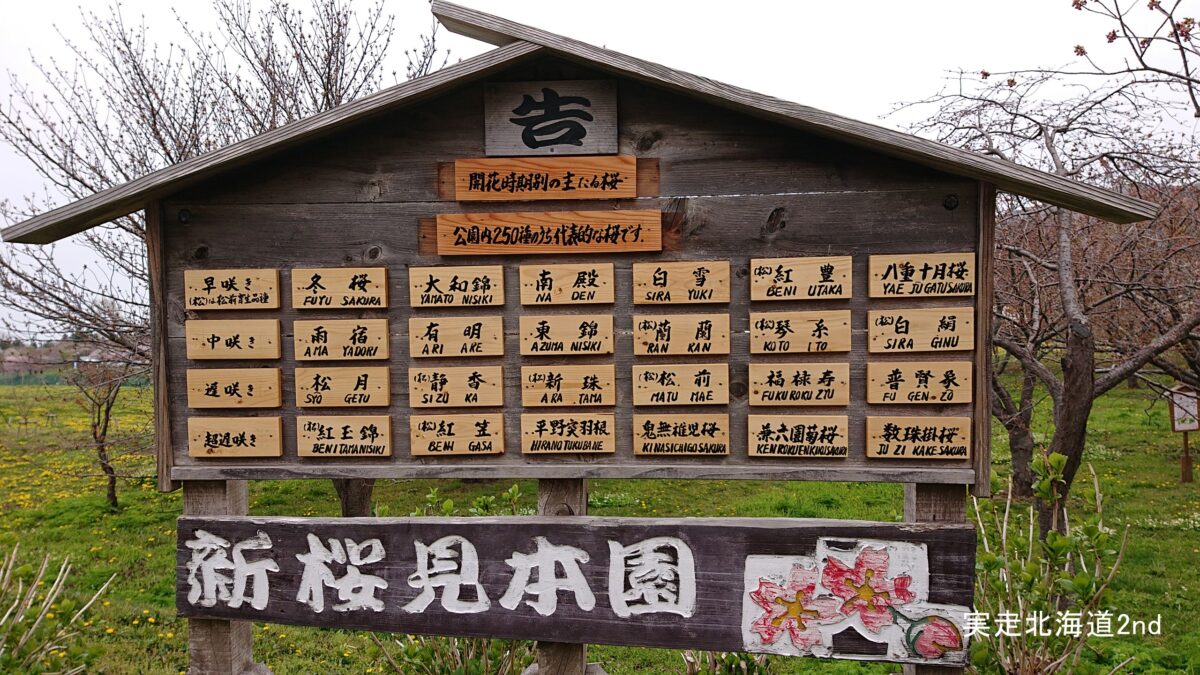 告
開花時期別の主たる桜
公園内250種のうち代表的な桜です.
早咲き
(松)は松前育生品種
冬桜
FUYU SAKURA
大和錦
YAMATO NISIKI
南殿
NA DEN
白雪
SIRA YUKI
(松)紅豊
BENI UTAKA
八重十月桜
YAE JUGATUSAKURA
中咲き
雨宿
AMA YADORI
有明
ARI AKE
東錦
AZUMA NISIKI
(松)蘭蘭
RAN RAN
(松)琴糸
KOTO ITO
(松)白絹
SIRA GINU
遅咲き
松月
SYO GETU
(松)静香
SIZU KA
(松)新珠
ARA TAMA
(松)松前
MATU MAE
福禄寿
FUKU ROKU ZYU
普賢象
FU GEN ZO
超遅咲き
(松)紅玉錦
BENI TAMANISIKI
(松)紅笠
BENI GASA
平野突羽根
HIRANO TUKUBANE
鬼無稚児桜
KINASICHIGOSAKURA
兼六園菊桜
KENROKUENKIKUSAKURA
数珠掛桜
JU ZI KAKE SAKURA
新桜見本園
実走北海道2nd